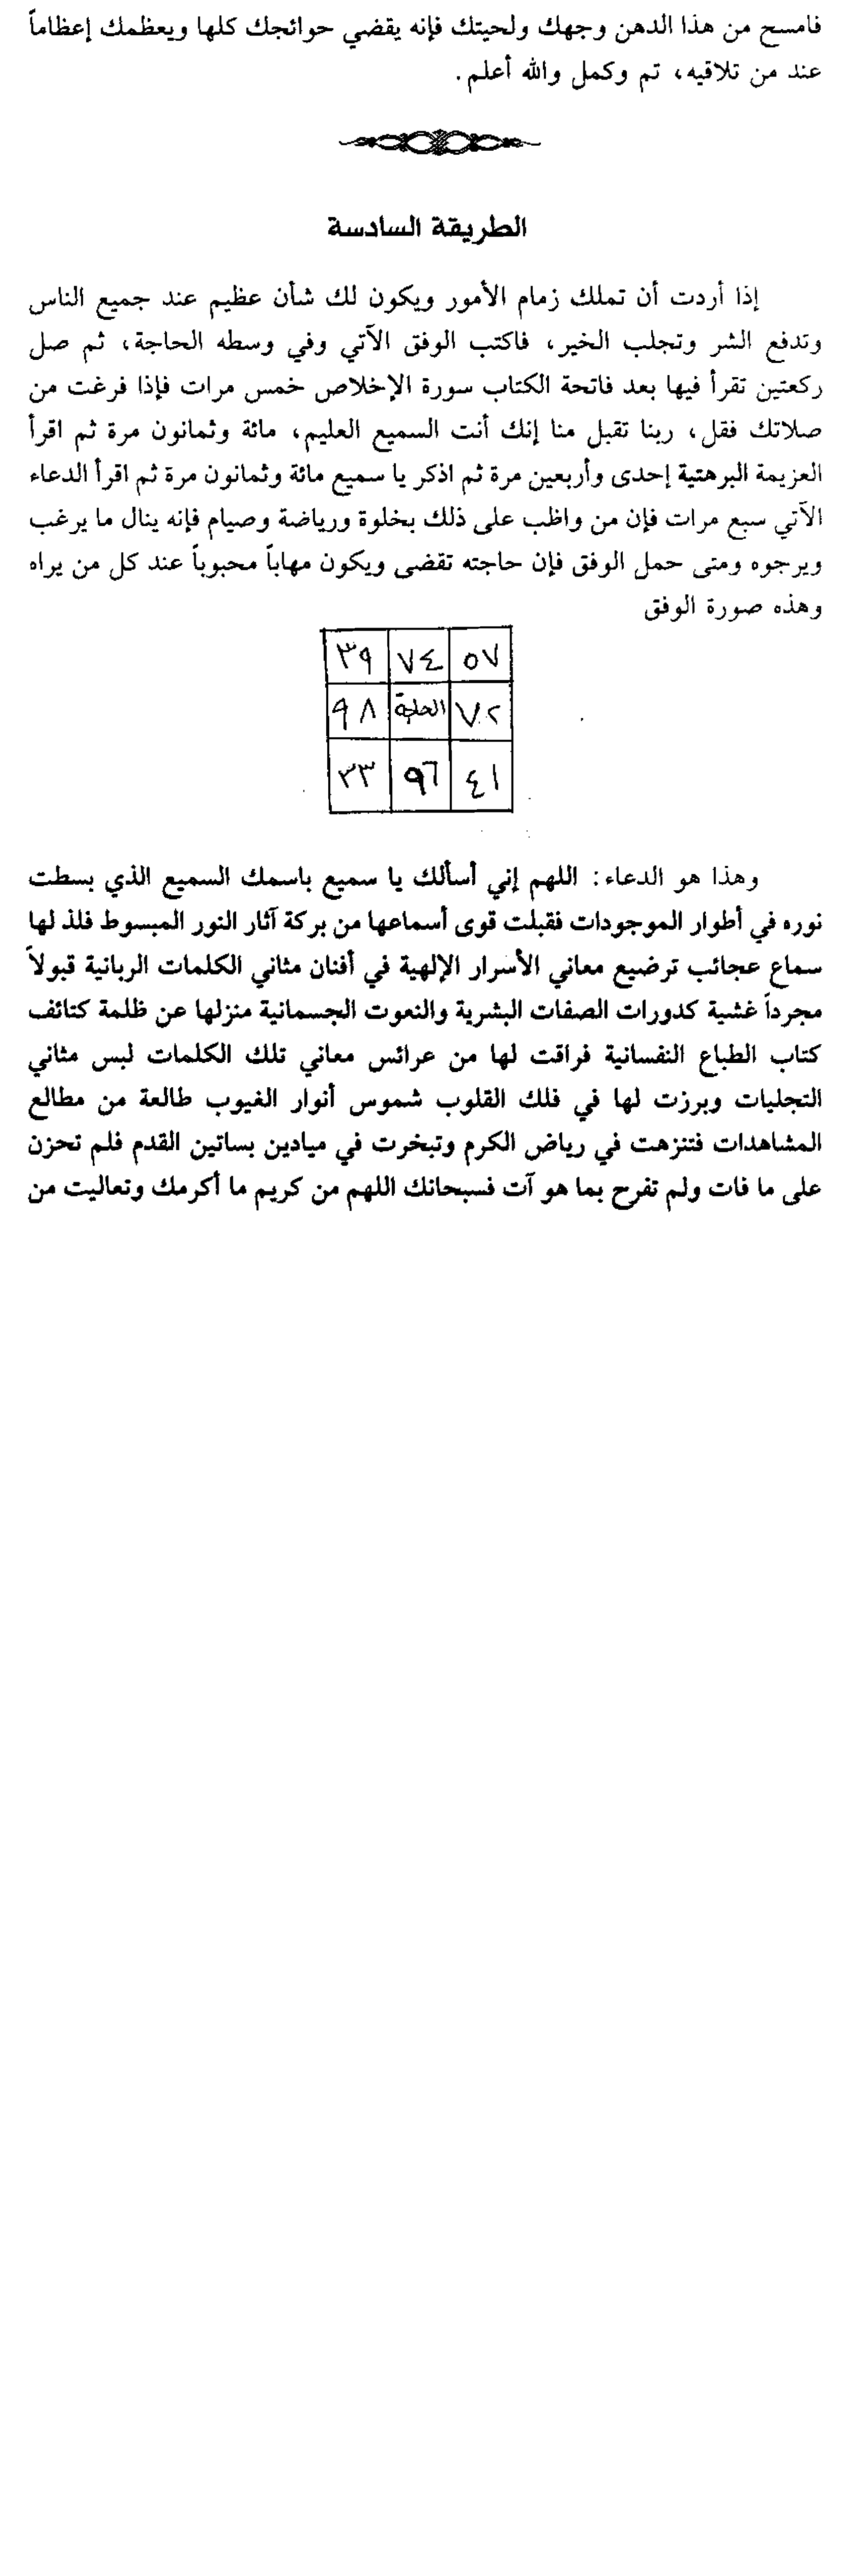 فامسح من هذا الدهن وجهك ولحيتك فإنه يقضي حوائجك كلها ويعظمك إعظاماً
عند من تلاقيه، تم وكمل والله أعلم.
الطريقة السادسة
إذا أردت أن تملك زمام الأمور ويكون لك شأن عظيم عند جميع الناس
وتدفع الشر وتجلب الخير، فاكتب الوفق الآتي وفي وسطه الحاجة، ثم صل
ركعتين تقرأ فيها بعد فاتحة الكتاب سورة الإخلاص خمس مرات فإذا فرغت من
صلاتك فقل، ربنا تقبل منا إنك أنت السميع العليم، مائة وثمانون مرة ثم اقرأ
العزيمة البرهتية إحدى وأربعين مرة ثم اذكر يا سميع مائة وثمانون مرة ثم اقرأ الدعاء
الآتي سبع مرات فإن من واظب على ذلك بخلوة ورياضة وصيام فإنه ينال ما يرغب
ويرجوه ومتى حمل الوفق فإن حاجته تقضى ويكون مهاباً محبوباً عند كل من يراه
وهذه صورة الوفق
٥٧ ٧٤ ٣٩
٧٢ الحاجة ٩٨
٤١ ٩٦ ٣٣
وهذا هو الدعاء: اللهم إني أسألك يا سميع باسمك السميع الذي بسطت
نوره في أطوار الموجودات فقبلت قوى أسماعها من بركة آثار النور المبسوط فلذ لها
سماع عجائب ترضيع معاني الأسرار الإلهية في أفنان مثاني الكلمات الربانية قبولاً
مجرداً غشية كدورات الصفات البشرية والنعوت الجسمانية منزلها عن ظلمة كتائف
كتاب الطباع النفسانية فراقت لها من عرائس معاني تلك الكلمات لبس مثاني
التجليات وبرزت لها في فلك القلوب شموس أنوار الغيوب طالعة من مطالع
المشاهدات فتنزهت في رياض الكرم وتبخرت في ميادين بساتين القدم فلم تحزن
على ما فات ولم تفرح بما هو آت فسبحانك اللهم من كريم ما أكرمك وتعاليت من